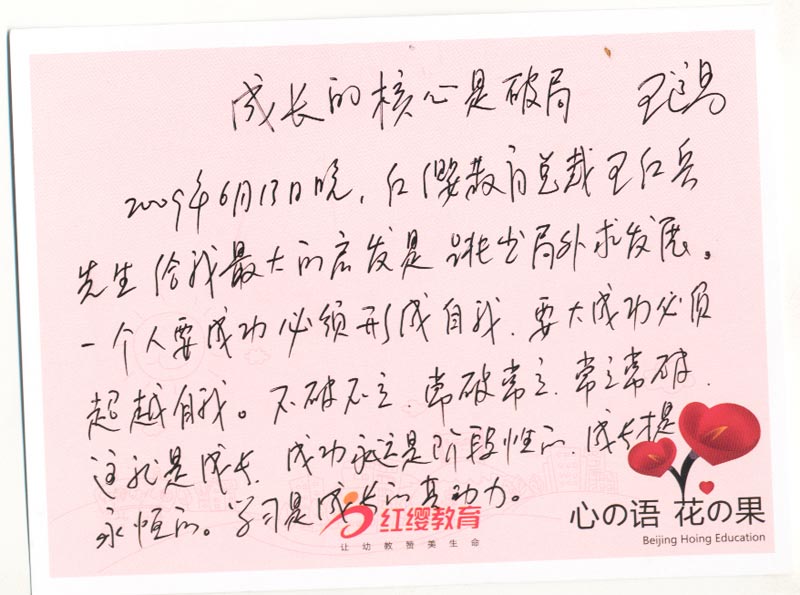 成长的核心是破局 王
2009年6月13日晚，红缨教育总裁王红兵
先生给我最大的启发是跳出局外求发展。
一个人要成功必须形成自我，要大成功必须
超越自我。不破不立，常破常立，常立常破，
这就是成长，成功永远是阶段性的，成长才是
永恒的。学习是成长的真动力。
红缨教育
让幼教赞美生命
心の语 花の果
Beijing Hoing Education